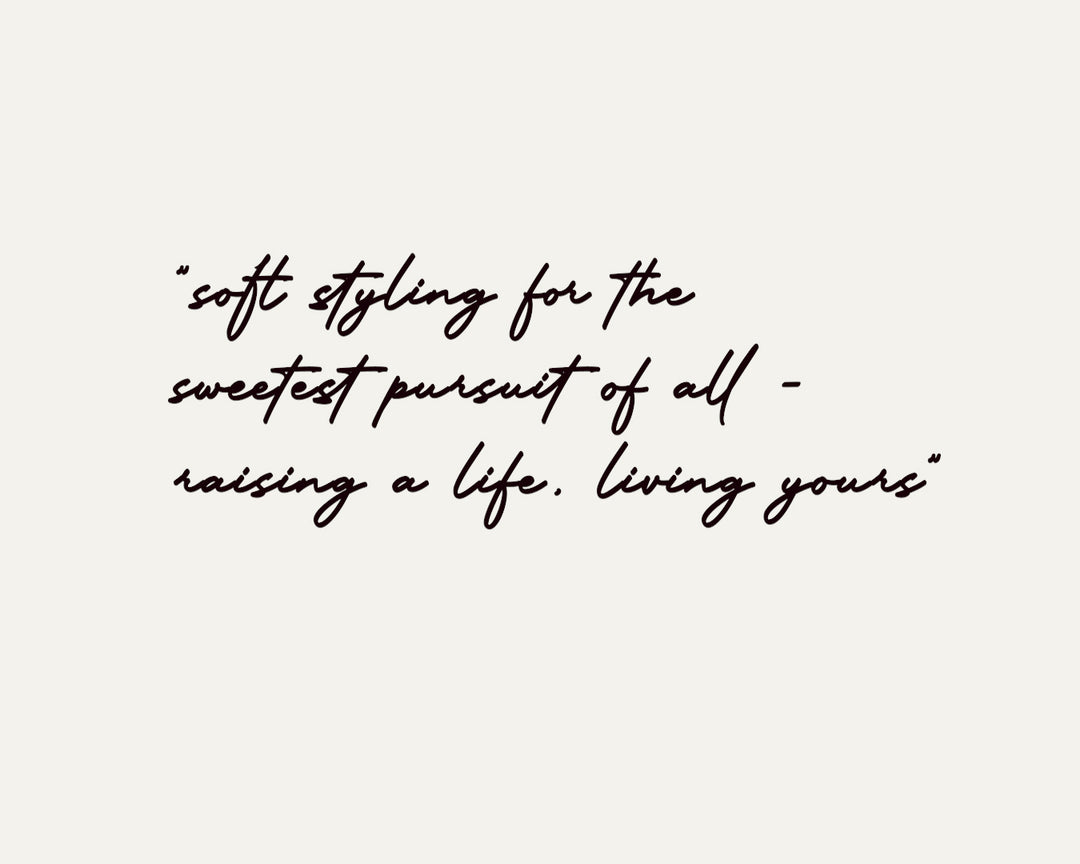 "soft styling for the
sweetest pursuit of all -
raising a life. living yours"